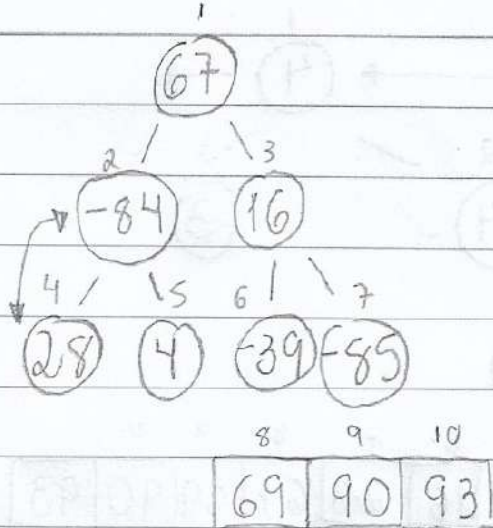 1
67
2 3
-84 16
4 5 6 7
28 4 -39 -85
8 9 10
69 90 93